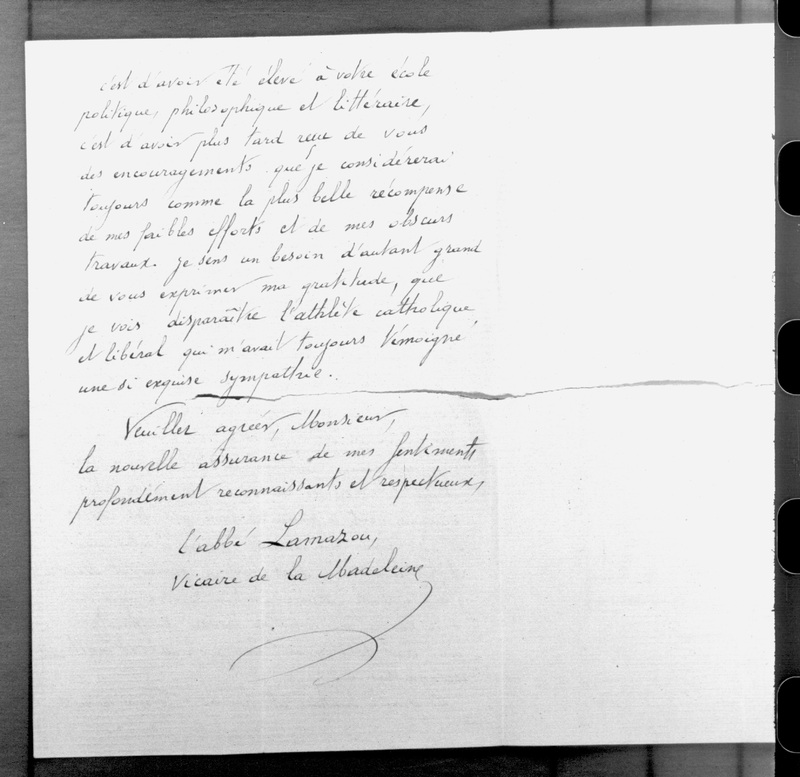 c'est d'avoir été élevé à votre école
politique, philosophique et littéraire,
c'est d'avoir plus tard reçu de vous
des encouragements que je considérerai
toujours comme la plus belle récompense
de mes faibles efforts et de mes obscurs
travaux. Je sens un besoin d'autant grand
de vous exprimer ma gratitude, que
je vois disparaître l'athlète catholique
et libéral qui m'avait toujours témoigné
une si exquise sympathie.
Veuillez agréer, Monsieur,
la nouvelle assurance de mes sentiments
profondément reconnaissants et respectueux,
l'abbé Lamazou,
Vicaire de la Madeleine